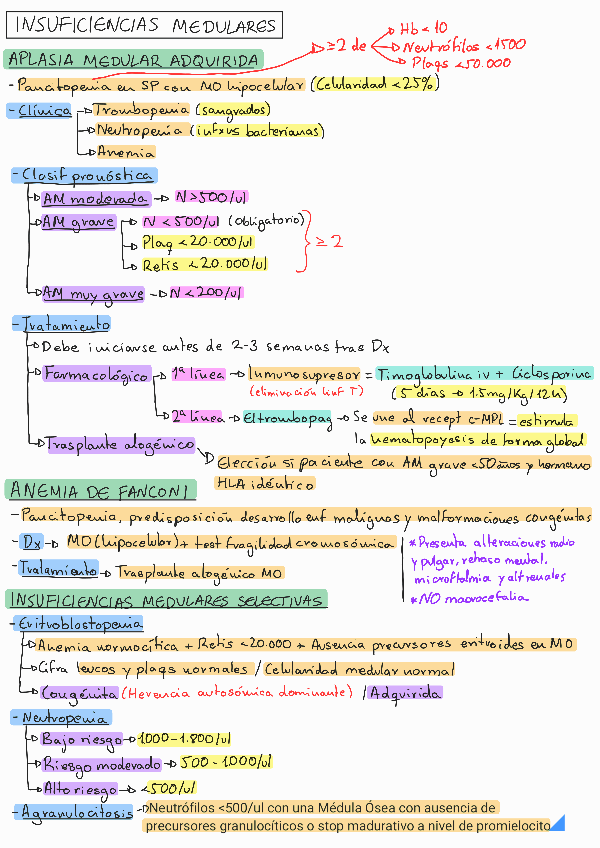 INSUFICIENCIAS MEDULARES
≥2 de
Hb < 10
Neutrófilos <1500
Plaqs <50.000
APLASIA MEDULAR ADQUIRIDA
- Pancitopenia en SP con MO hipocelular (Celularidad <25%)
- Clínica → Trombopenia (sangrados)
→ Neutropenia (infxus bacterianas)
→ Anemia
- Clasif pronóstica
→ AM moderada → N>500/ul
→ AM grave → N <500/ul (obligatorio)
→ Plaq <20.000/ul
→ Retis <20.000/ul
≥ 2
→ AM muy grave → N<200/ul
- Tratamiento
→ Debe iniciarse antes de 2-3 semanas tras Dx
→ Farmacológico → 1ª línea → Inmunosupresor = Timoglobulina iv + Ciclosporina
(eliminación linf T) (5 días → 1.5mg/Kg/12h)
→ 2ª línea → Eltrombopag → Se une al recept c-MPL = estimula
la hematopoyesis de forma global
→ Trasplante alogénico
→ Elección si paciente con AM grave <50años y hermano
HLA idéntico
ANEMIA DE FANCONI
- Pancitopenia, predisposición desarrollo enf malignas y malformaciones congénitas
- Dx → MO (hipocelular) + test fragilidad cromosómica
- Tratamiento → Trasplante alogénico MO
* Presenta alteraciones radio
y pulgar, retraso mental,
microftalmia y alt renales
* NO macrocefalia
INSUFICIENCIAS MEDULARES SELECTIVAS
- Eritroblastopenia
→ Anemia normocítica + Retis <20.000 + Ausencia precursores eritroides en MO
→ Cifra leucos y plaqs normales / Celularidad medular normal
→ Congénita (Herencia autosómica dominante) / Adquirida
- Neutropenia
→ Bajo riesgo → 1000-1.800/ul
→ Riesgo moderado → 500 - 1000/ul
→ Alto riesgo → <500/ul
- Agranulocitosis → Neutrófilos <500/ul con una Médula Ósea con ausencia de
precursores granulocíticos o stop madurativo a nivel de promielocito